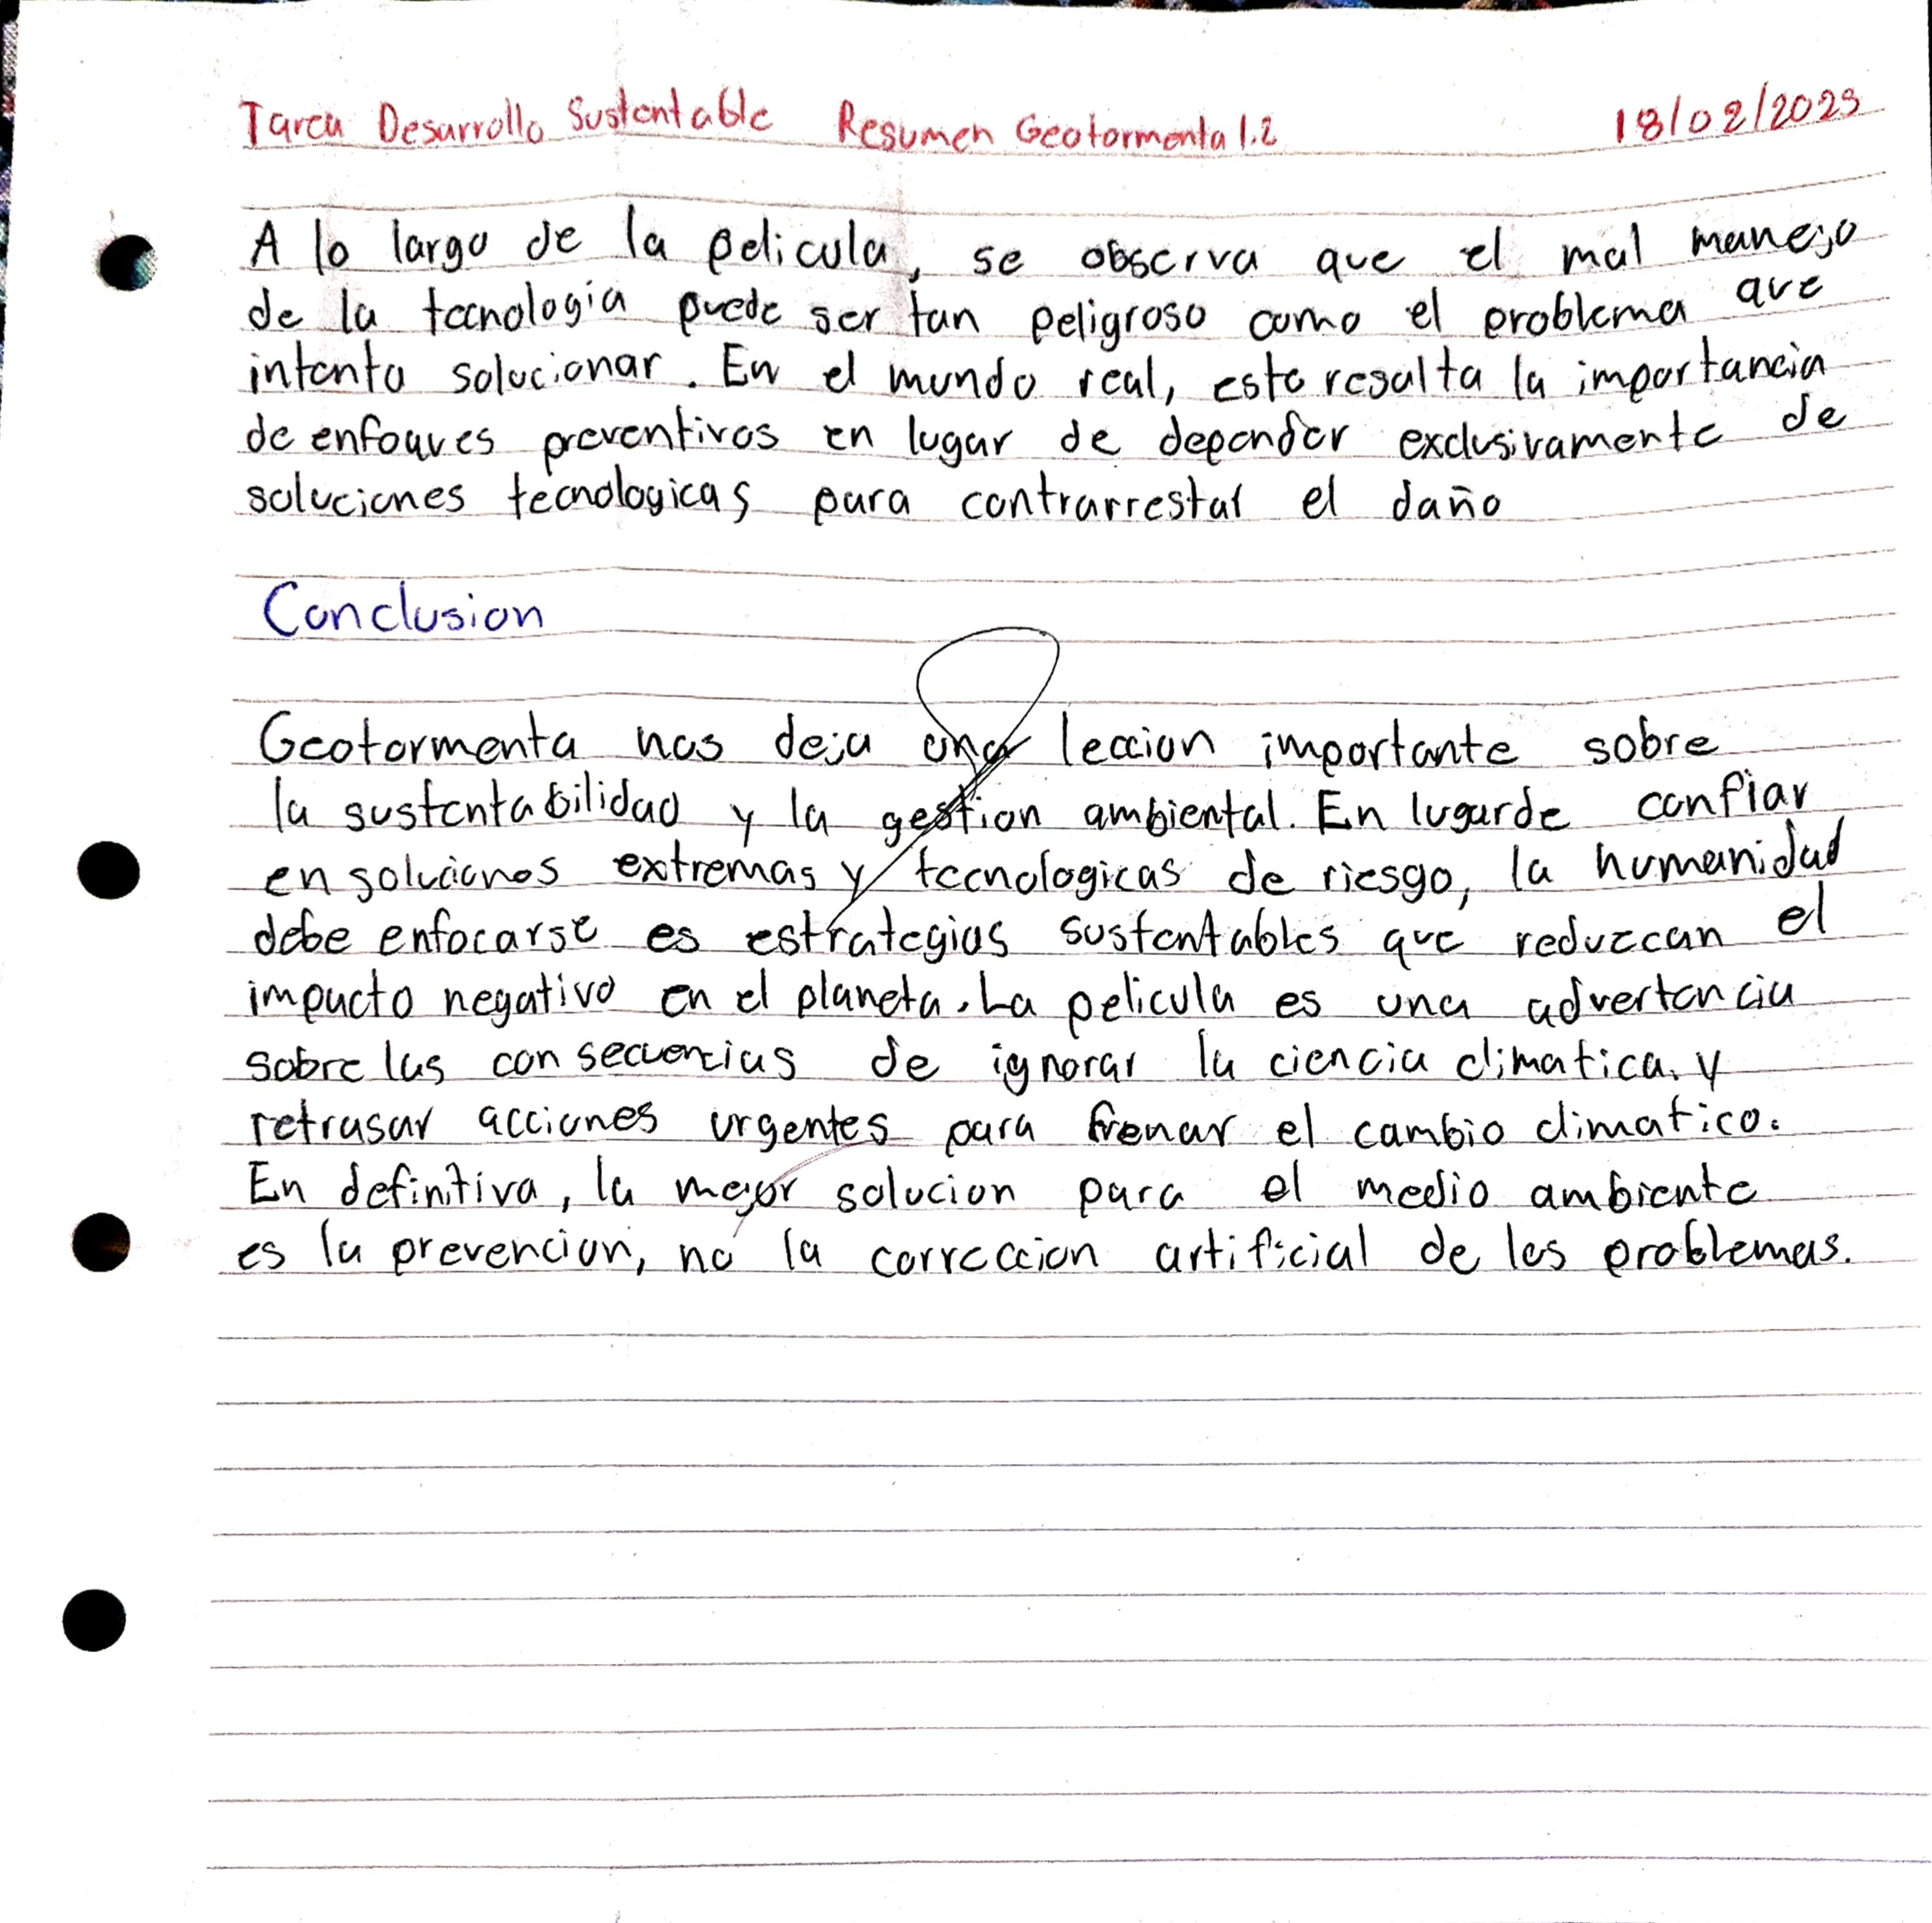 Tarea Desarrollo Sustentable Resumen Geotormenta 1.2 18/02/2025
A lo largo de la pelicula, se observa que el mal manejo
de la tecnologia puede ser tan peligroso como el problema que
intenta solucionar. En el mundo real, esto resalta la importancia
de enfoques preventivos en lugar de depender exclusivamente de
soluciones tecnologicas para contrarrestar el daño
Conclusion
Geotormenta nos deja una leccion importante sobre
la sustentabilidad y la gestion ambiental. En lugar de confiar
en soluciones extremas y tecnologicas de riesgo, la humanidad
debe enfocarse es estrategias sustentables que reduzcan el
impacto negativo en el planeta. La pelicula es una advertencia
sobre las consecuencias de ignorar la ciencia climatica. y
retrasar acciones urgentes para frenar el cambio climatico.
En definitiva, la mejor solucion para el medio ambiente
es la prevencion, no la correccion artificial de los problemas.